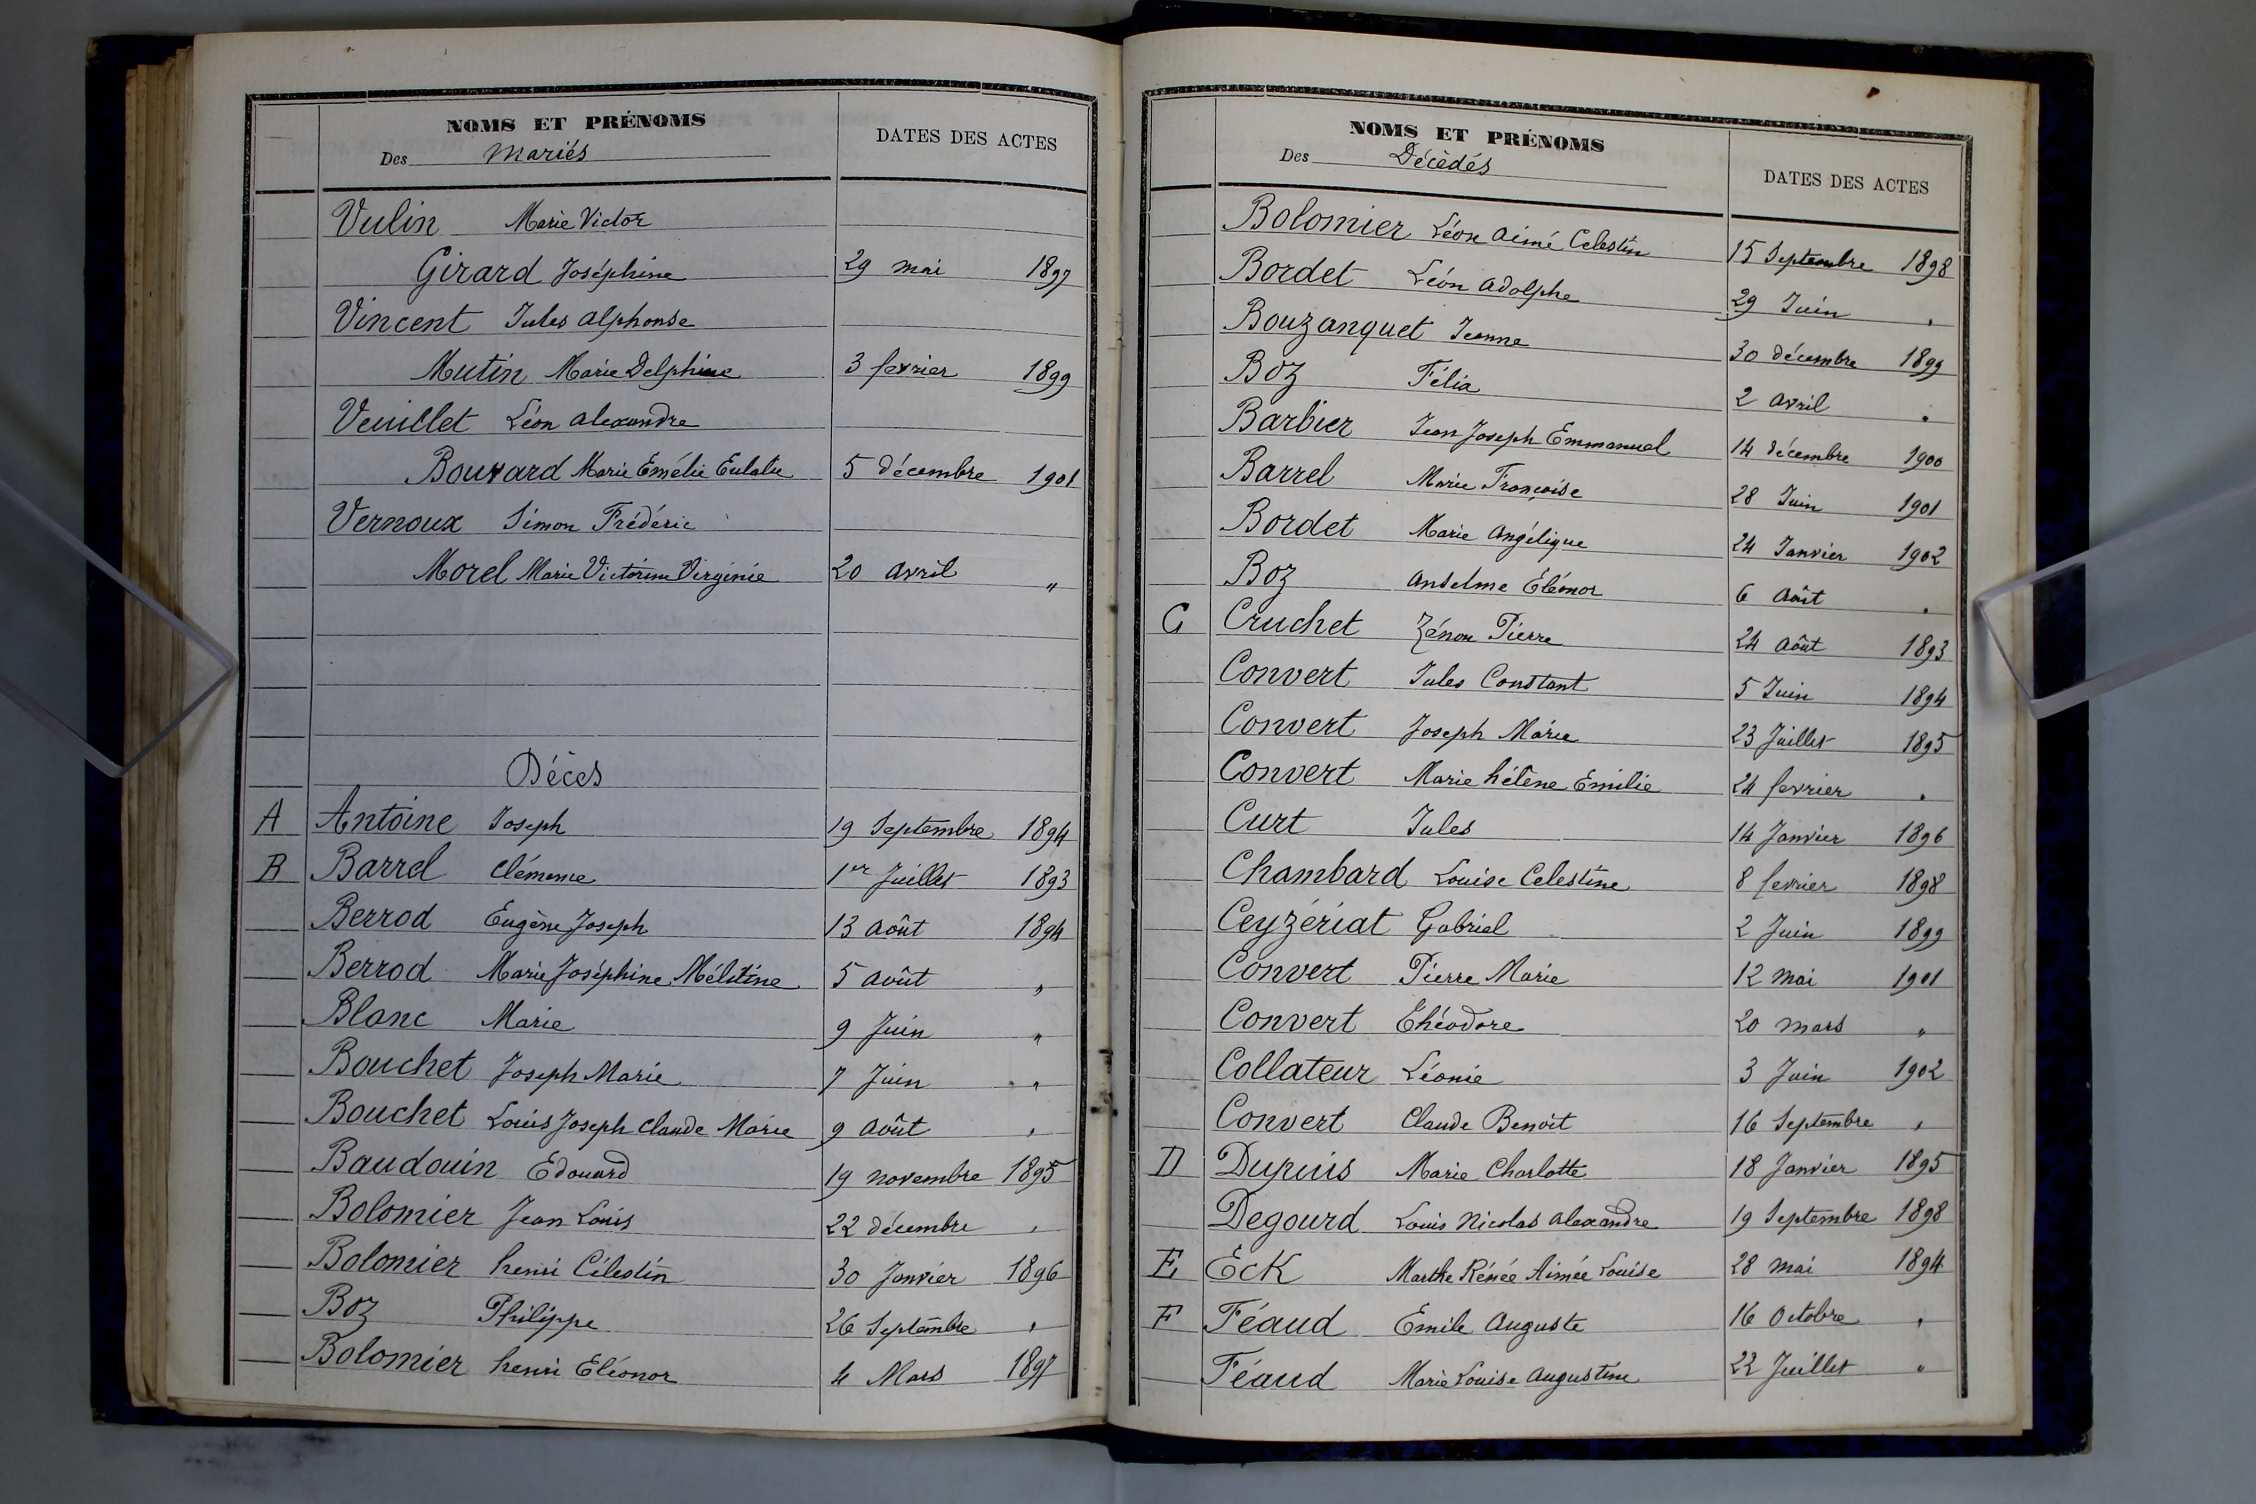 NOMS ET PRÉNOMS
Des Mariés
DATES DES ACTES
Vulin Marie Victor
Girard Joséphine 29 mai 1897
Vincent Jules Alphonse
Mutin Marie Delphine 3 fevrier 1899
Veuillet Léon Alexandre
Bouvard Marie Emélie Eulalie 5 décembre 1901
Vernoux Simon Frédéric
Morel Marie Victorine Virginie 20 avril "
Décès
A Antoine Joseph 19 Septembre 1894
B Barrel Clémence 1er Juillet 1893
Berrod Eugène Joseph 13 août 1894
Berrod Marie Joséphine Mélitine 5 août "
Blanc Marie 9 Juin "
Bouchet Joseph Marie 7 Juin "
Bouchet Louis Joseph Claude Marie 9 août "
Baudouin Edouard 19 novembre 1895
Bolomier Jean Louis 22 décembre "
Bolomier henri Célestin 30 Janvier 1896
Boz Philippe 26 Septembre "
Bolomier henri Eléonor 4 Mars 1897
NOMS ET PRÉNOMS
Des Décédés
DATES DES ACTES
Bolomier Léon Aimé Celestin 15 Septembre 1898
Bordet Léon Adolphe 29 Juin "
Bouzanquet Jeanne 30 décembre 1899
Boz Félix 2 avril "
Barbier Jean Joseph Emmanuel 14 décembre 1900
Barrel Marie Françoise 28 Juin 1901
Bordet Marie Angélique 24 Janvier 1902
Boz Anselme Élénor 6 Août "
C Cruchet Zénon Pierre 24 août 1893
Convert Jules Constant 5 Juin 1894
Convert Joseph Marie 23 Juillet 1895
Convert Marie hélène Emilie 24 fevrier "
Curt Jules 14 Janvier 1896
Chambard Louise Celestine 8 fevrier 1898
Ceyzériat Gabriel 2 Juin 1899
Convert Pierre Marie 12 mai 1901
Convert Théodore 20 mars "
Collateur Léonie 3 Juin 1902
Convert Claude Benoit 16 Septembre "
D Dupuis Marie Charlotte 18 Janvier 1895
Degourd Louis Nicolas Alexandre 19 Septembre 1898
E Eck Marthe Rénée Aimée Louise 28 mai 1894
F Féaud Emile Auguste 16 Octobre "
Féaud Marie Louise Augustine 22 Juillet "